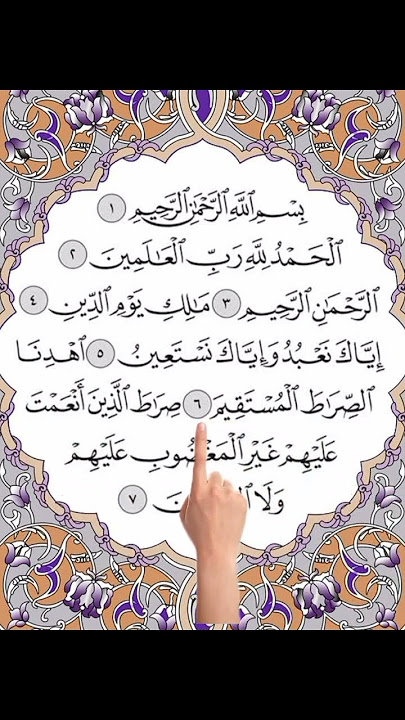 بِسْمِ اللَّهِ الرَّحْمَٰنِ الرَّحِيمِ ١
الْحَمْدُ لِلَّهِ رَبِّ الْعَالَمِينَ ٢
الرَّحْمَٰنِ الرَّحِيمِ ٣ مَالِكِ يَوْمِ الدِّينِ ٤
إِيَّاكَ نَعْبُدُ وَإِيَّاكَ نَسْتَعِينُ ٥ اهْدِنَا
الصِّرَاطَ الْمُسْتَقِيمَ ٦ صِرَاطَ الَّذِينَ أَنْعَمْتَ
عَلَيْهِمْ غَيْرِ الْمَغْضُوبِ عَلَيْهِمْ
وَلَا ٧